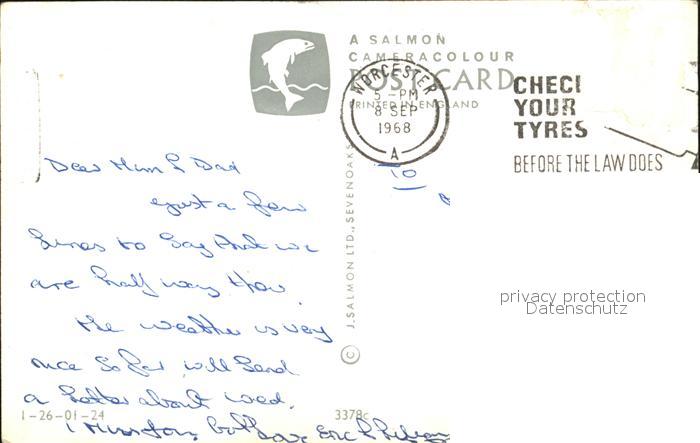 A SALMON
CAMERACOLOUR
POST CARD
PRINTED IN ENGLAND
WORCESTER
5 - PM
8 SEP
1968
A
CHECK
YOUR
TYRES
BEFORE THE LAW DOES
TO
Dear Mum & Dad
Just a few
lines to say that we
are half way thou.
The weather is very
nice so far, will send
a letter about wed.
1-26-01-24
3378c
© J. SALMON LTD., SEVENOAKS
privacy protection
Datenschutz